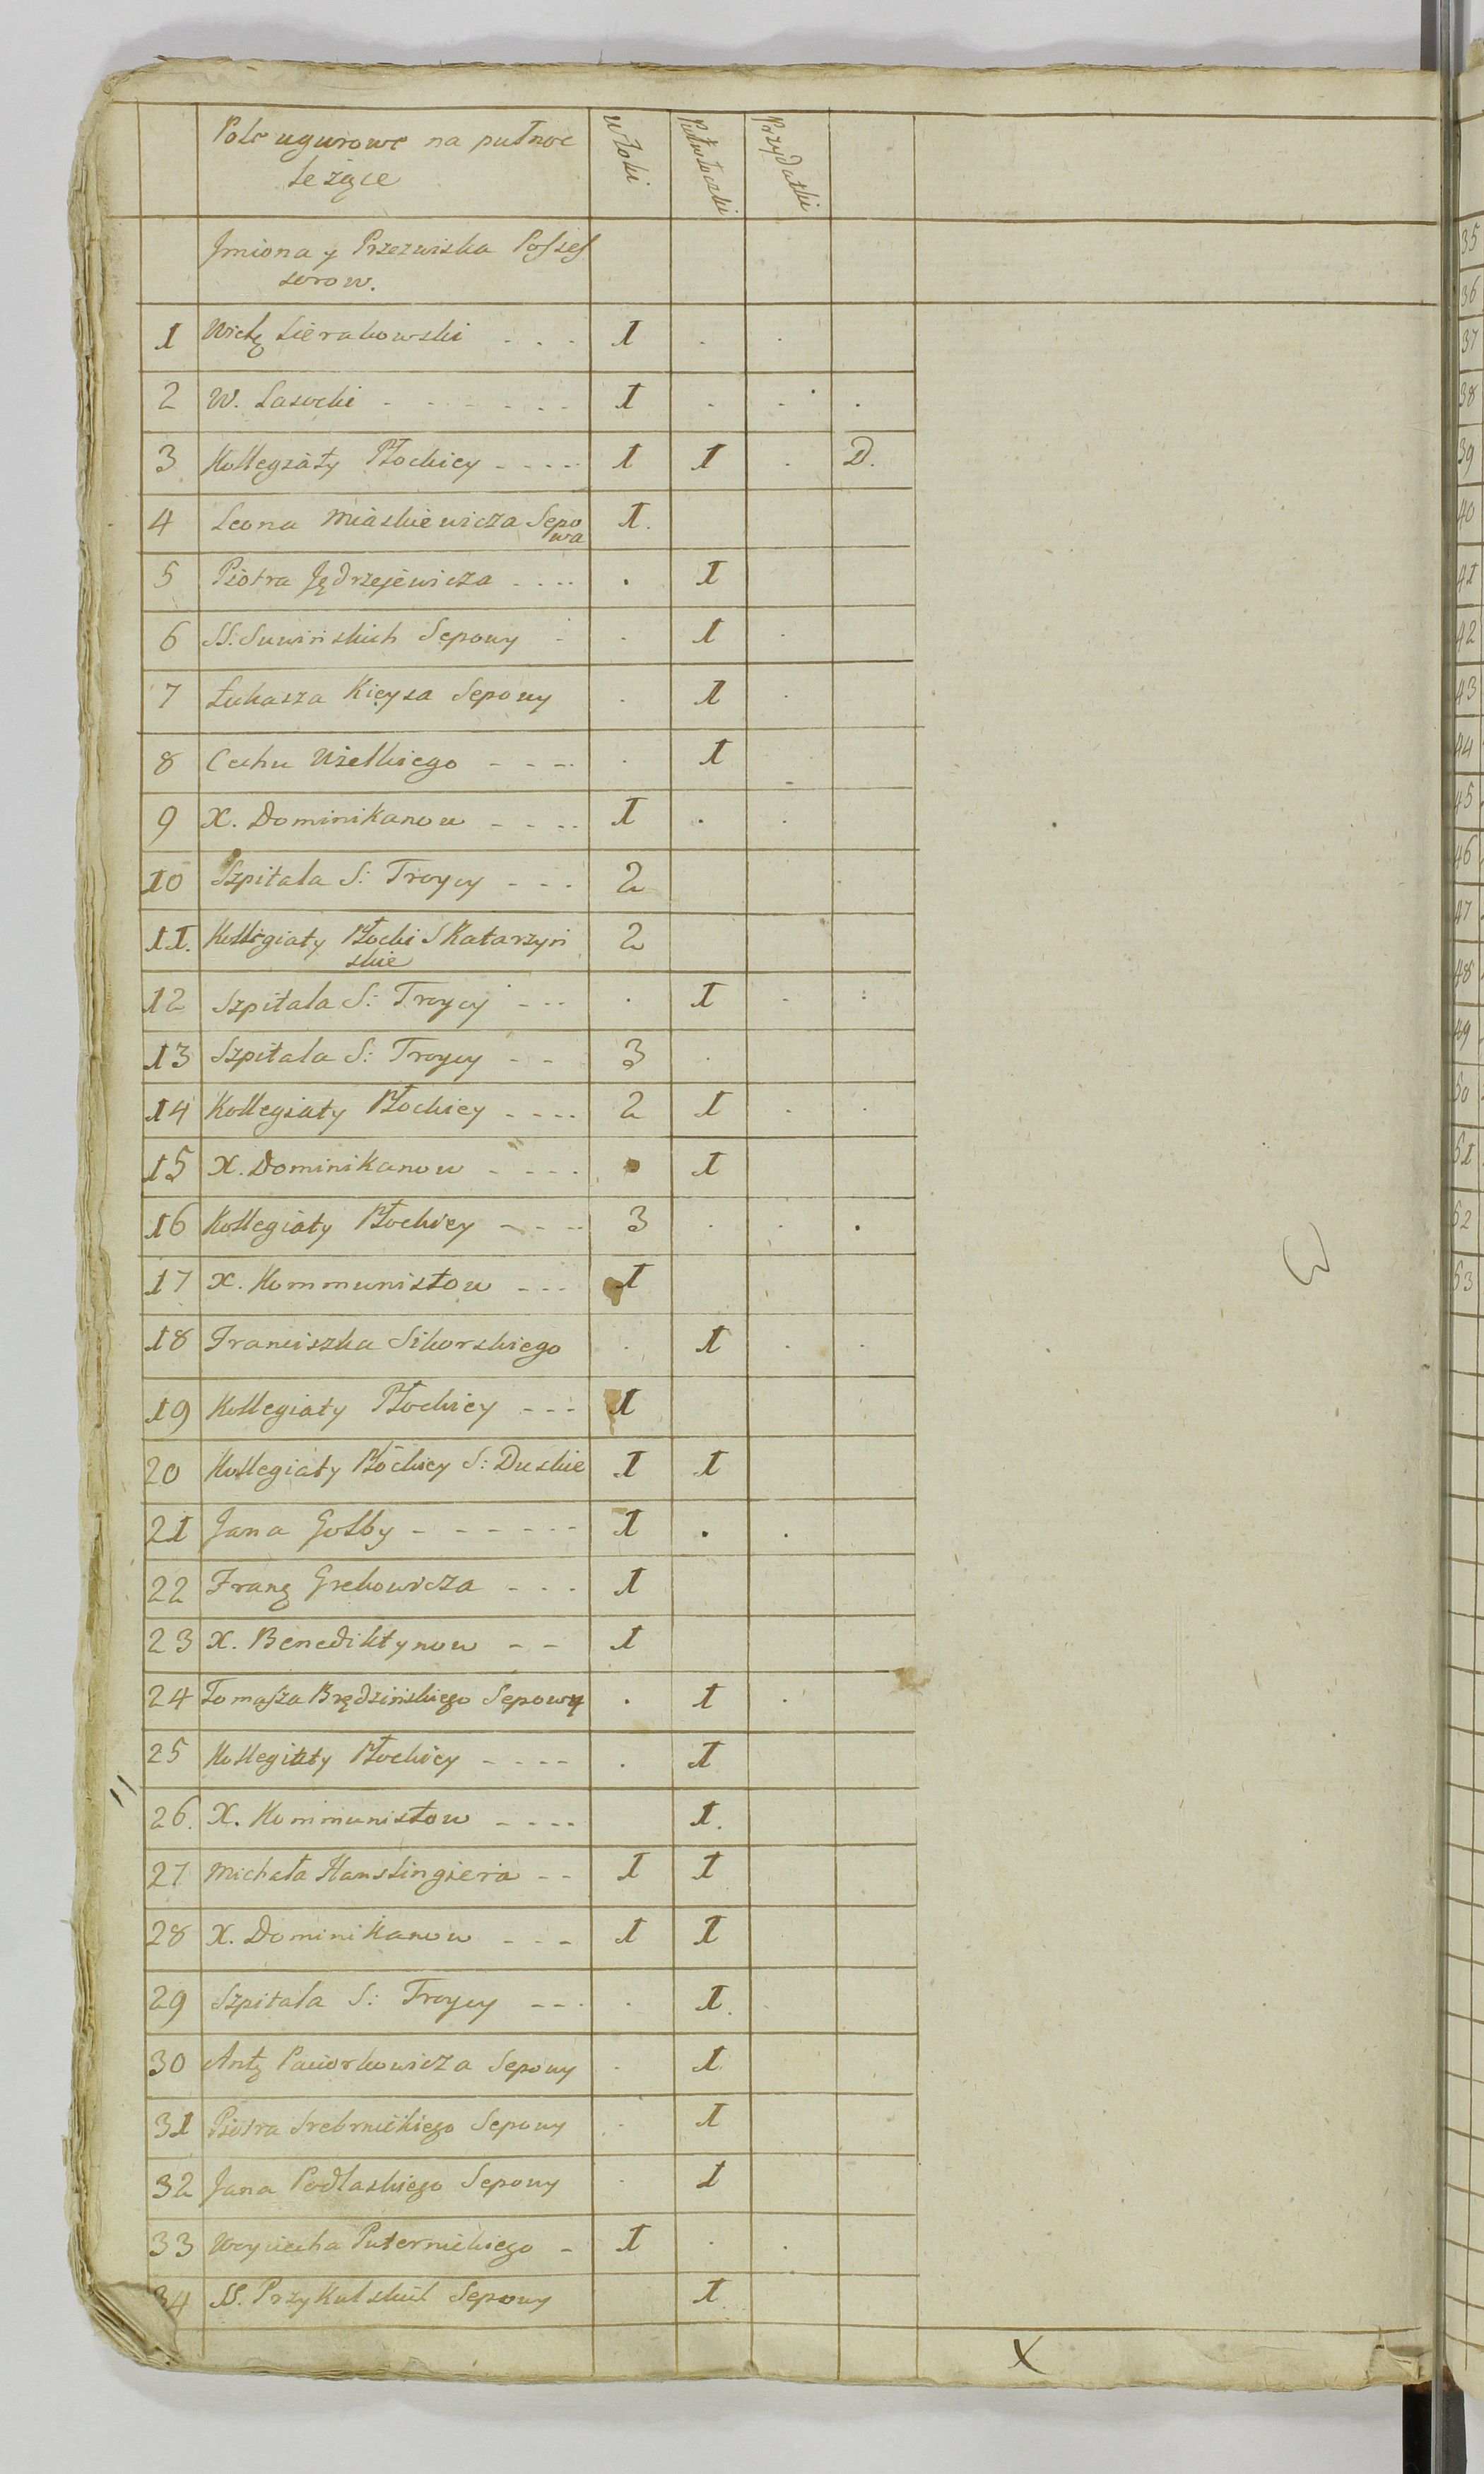 Pole ugurowe na pułnoc Włoki Pułwłoczki Przydatki
leżące
Jmiona y Przezwiska Posses
sorow.
1 Wictg Sierakowski - - - 1
2 W. Lasocki - - - - - - 1
3 Kollegiaty Płockiey - - - - 1 1 D.
4 Leona Miaskiewicza Sepo 1.
wa
5 Piotra Jędrzejewicza - - - - 1
6 SS. Suwinskich Sepowy 1
7 Łukasza Kieysa Sepowy 1
8 Cechu Wielkiego - - - - 1
9 X. Dominikanow - - - - 1
10 Szpitala S: Troycy - - - 2
11. Kollegiaty Płocki S Katarzyń 2
skie
12 Szpitala S: Troycy - - - 1
13 Szpitala S: Troycy - - 3
14 Kollegiaty Płockiey - - - - 2 1
15 X. Dominikanow - - - - 1
16 Kollegiaty Płockiey - - - - 3
17 X. Kommunistow - - - 1
18 Franciszka Sikorskiego 1
19 Kollegiaty Płockiey - - - 1
20 Kollegiaty Płockiey S: Duskie 1 1
21 Jana Golby - - - - - - 1
22 Frang Grekowicza - - - 1
23 X. Benediktynow - - 1
24 Tomasza Brędzińskiego Sepowy 1
25 Kollegiaty Płockiey - - - - 1
26. X. Kommunistow - - - - 1.
27 Michała Hanslingiera - - 1 1
28 X. Dominikanow - - - 1 1
29 Szpitala S: Troycy - - - 1.
30 Antg Paciorkowicza Sepowy 1
31 Piotra Srebrnickiego Sepowy 1
32 Jana Podlaskiego Sepowy 1
33 Woyciecha Puternickiego - 1
34 SS. Przykulskich Sepowy 1
X
35
36
37
38
39
40
41
42
43
44
45
46
47
48
49
50
51
52
53